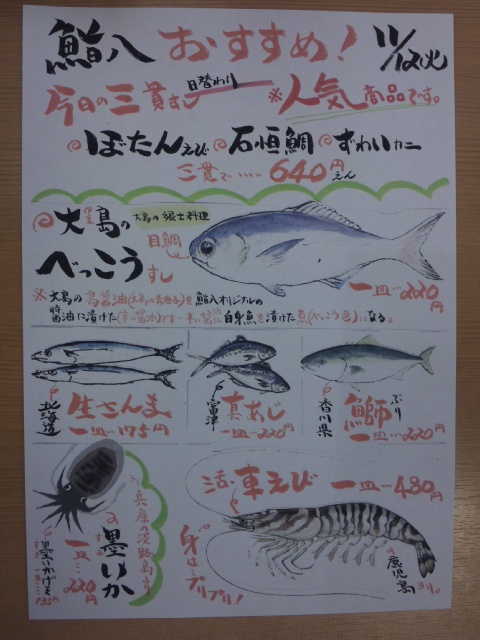 鮨八 おすすめ! 11/12(火)
今日の三貫すし 日替わり ※人気商品です。
ぼたんえび 石垣鯛 ずわいカニ
三貫で‥‥640円えん
伊豆大島の 大島の郷土料理
べっこうすし
目鯛
一皿‥‥220円
※大島の島醤油(大島の青唐子)を鮨八オリジナルの
醤油に漬けた(辛い醤油)です
白身魚を漬けた魚(べっこう色)になる。
北海道 生さんま
一皿‥‥175円
富津 真あじ
一皿‥‥220円
香川県 鰤ぶり
一皿‥‥220円
兵庫の淡路島より
墨いか
一皿‥‥220円
墨いかげそ
一皿‥‥135円
活車えび 一皿‥‥480円
身はプリプリ!
鹿児島ヨリ。